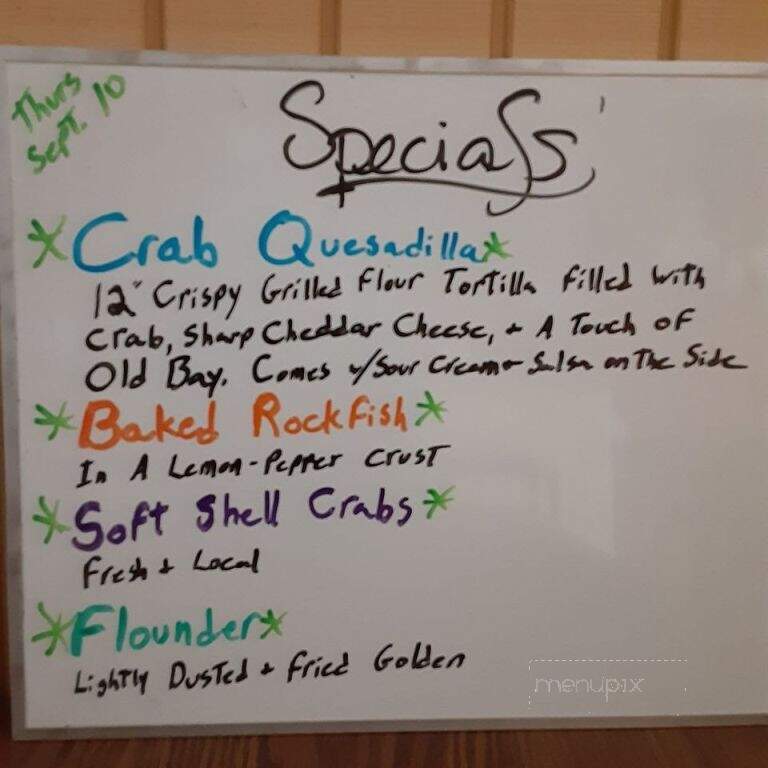 Thurs
Sept. 10
Specials
Crab Quesadilla
12" Crispy Grilled Flour Tortilla Filled With
Crab, Sharp Cheddar Cheese, + A Touch of
Old Bay. Comes w/Sour Cream + Salsa on The Side
Baked Rockfish
In A Lemon-Pepper Crust
Soft Shell Crabs
Fresh + Local
Flounder
Lightly Dusted + Fried Golden
menupix